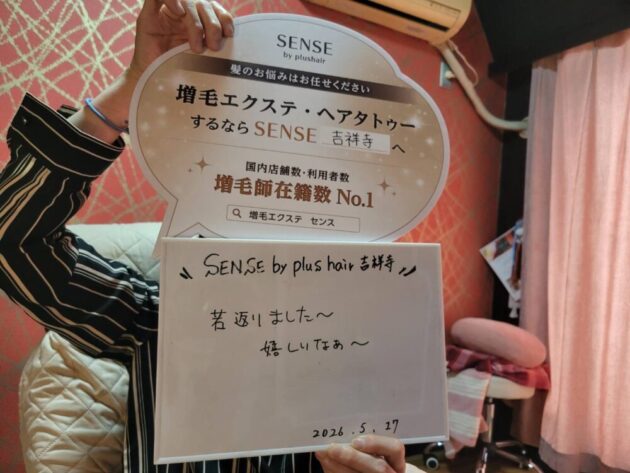 SENSE
by plushair
髪のお悩みはお任せください
増毛エクステ・ヘアタトゥー
するなら SENSE 吉祥寺 へ
国内店舗数・利用者数
増毛師在籍数 No.1
増毛エクステ センス
SENSE by plus hair 吉祥寺
若返りました〜
嬉しいなぁ〜
2026.5.17